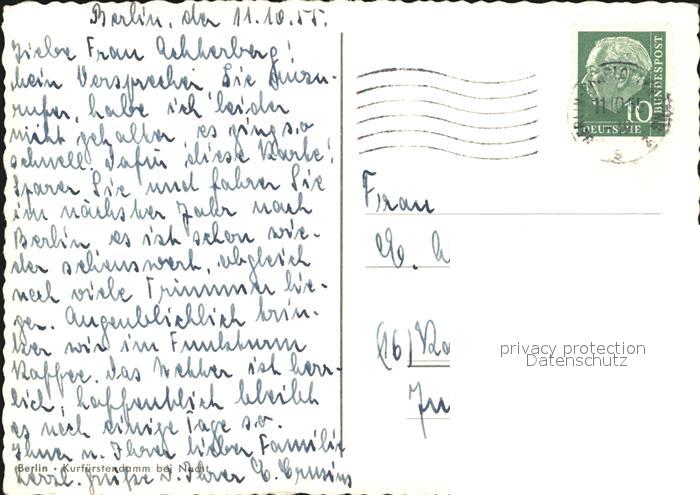 Berlin, den 11.10.55.
Liebe Frau Achterberg!
Mein Versprechen Sie Anzu-
rufen, habe ich leider
nicht gehalten es ging so
schnell. Dafür diese Karte!
Sparen Sie und fahren Sie
im nächsten Jahr nach
Berlin, es ist schon wie-
der sehenswert, obgleich
noch viele Trümmer lie-
gen. Augenblicklich trin-
ken wir im Funkturm
Kaffee. Das Wetter ist herr-
lich, hoffentlich bleibt
es noch einige Tage so.
Ihnen u. Ihrer lieben Familie
herzl. Grüße v. Ihrer E. Crusius
Berlin · Kurfürstendamm bei Nacht
DEUTSCHE
BUNDESPOST
10
Frau
E. A
(16)
privacy protection
Datenschutz